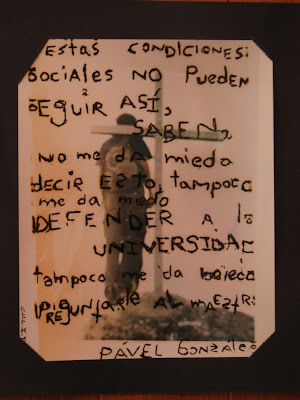 ESTAS CONDICIONES
SOCIALES NO PUEDEN
SEGUIR ASÍ,
SABEN,
NO me da miedo
decir ESTO, tampoco
me da miedo
DEFENDER A la
UNIVERSIDAD
tampoco me da miedo
PREGUNTARLE AL MAEZTRO
PÁVEL González